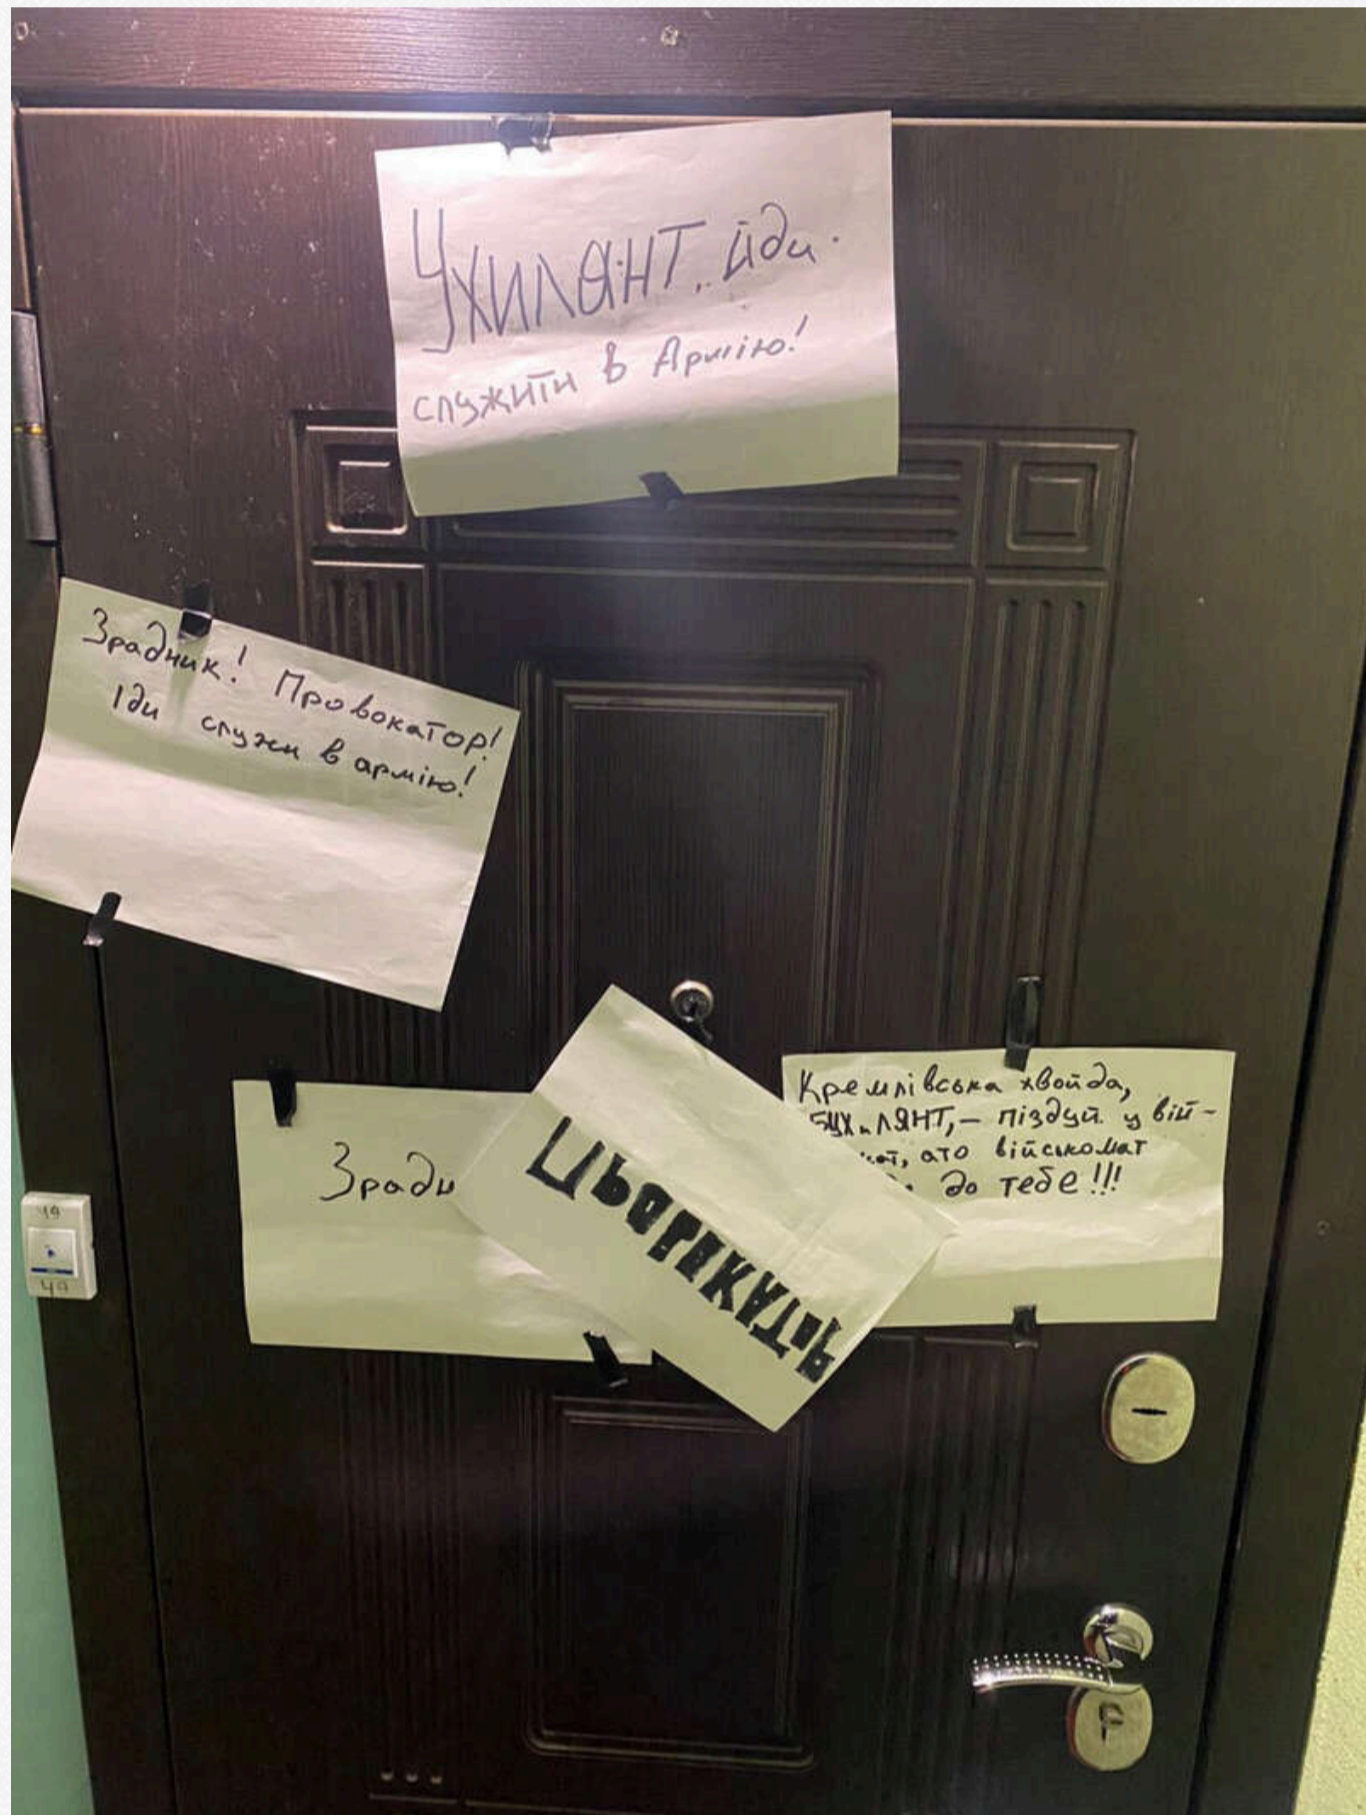 УХИЛЯНТ, йди
служити в Армію!
Зрадник! Провокатор!
Іди служи в армію!
Зради
ПРОВОКАТОР
Кремлівська хвойда,
УХиЛЯНТ,– піздуй у вій-
ато військомат
до тебе!!!
19
49